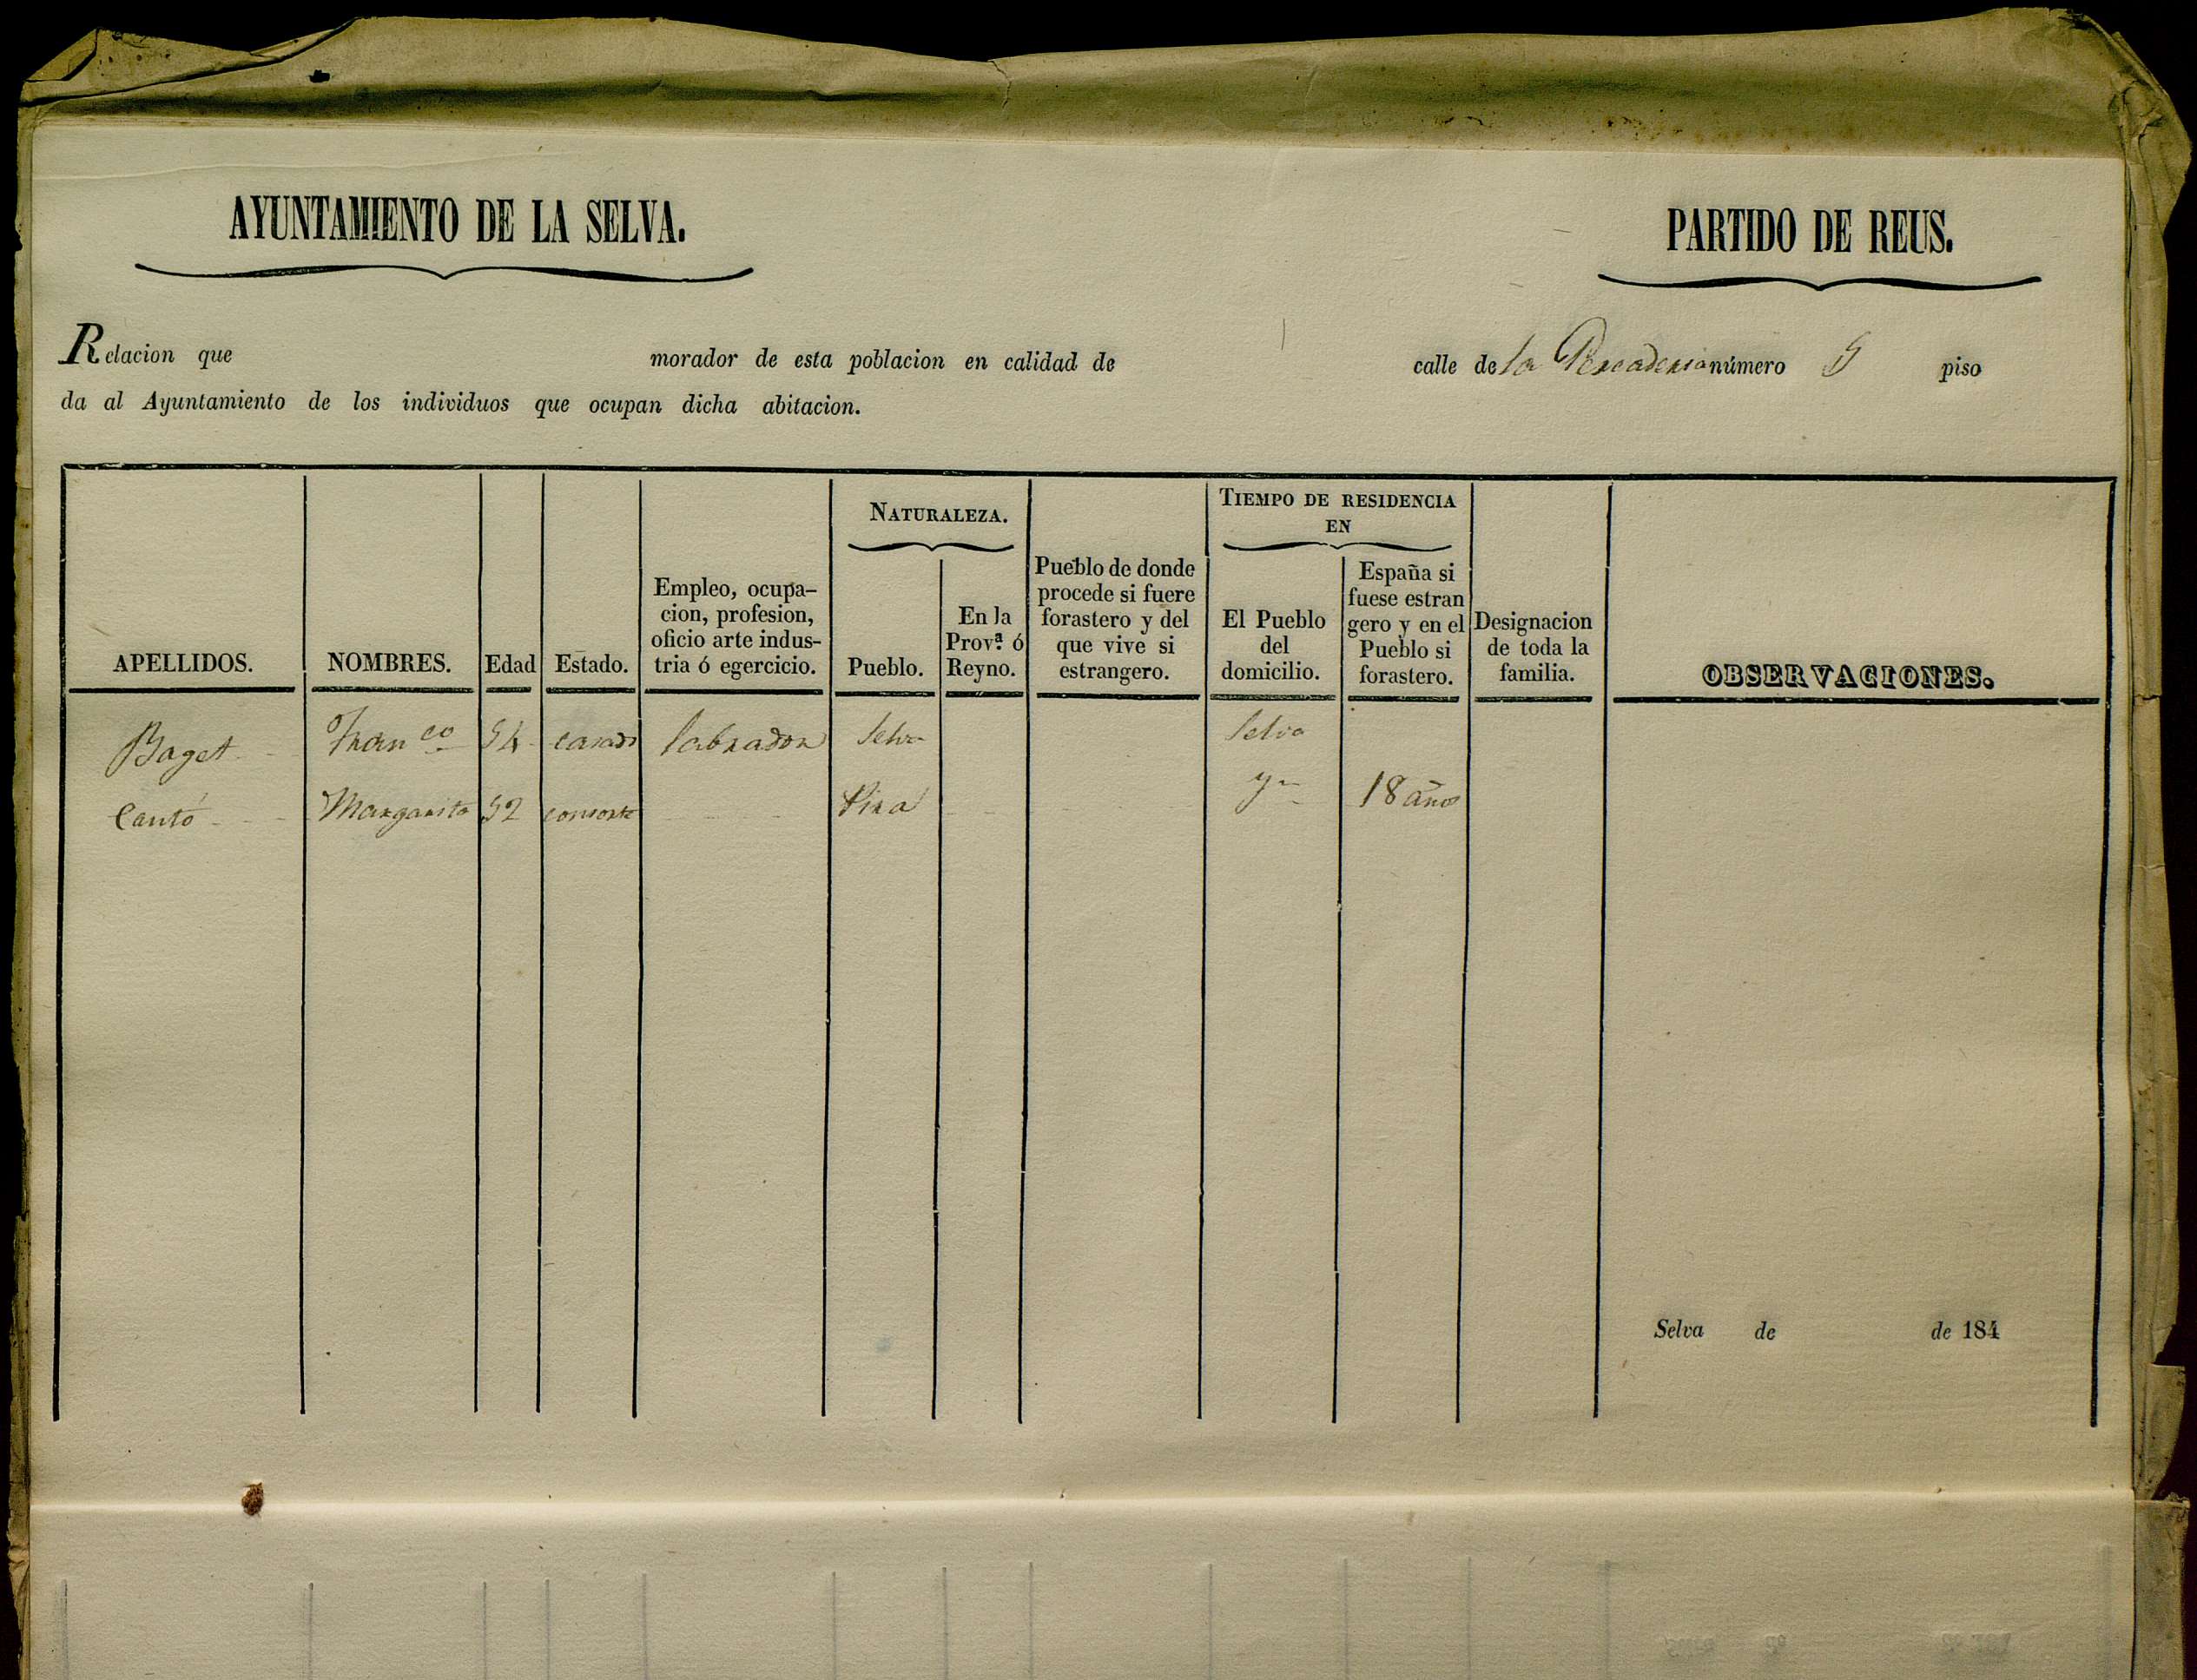 AYUNTAMIENTO DE LA SELVA.
PARTIDO DE REUS.
Relacion que morador de esta poblacion en calidad de calle de la Pescaderia número 5 piso
da al Ayuntamiento de los individuos que ocupan dicha abitacion.
APELLIDOS.
NOMBRES.
Edad
Estado.
Empleo, ocupa-
cion, profesion,
oficio arte indus-
tria ó egercicio.
NATURALEZA.
Pueblo.
En la
Provª ó
Reyno.
Pueblo de donde
procede si fuere
forastero y del
que vive si
estrangero.
TIEMPO DE RESIDENCIA
EN
El Pueblo
del
domicilio.
España si
fuese estran
gero y en el
Pueblo si
forastero.
Designacion
de toda la
familia.
OBSERVACIONES.
Baget Franco 54 casado labrador Selva Selva
Cantó Margarita 52 consorte Pira 18 años
Selva de de 184